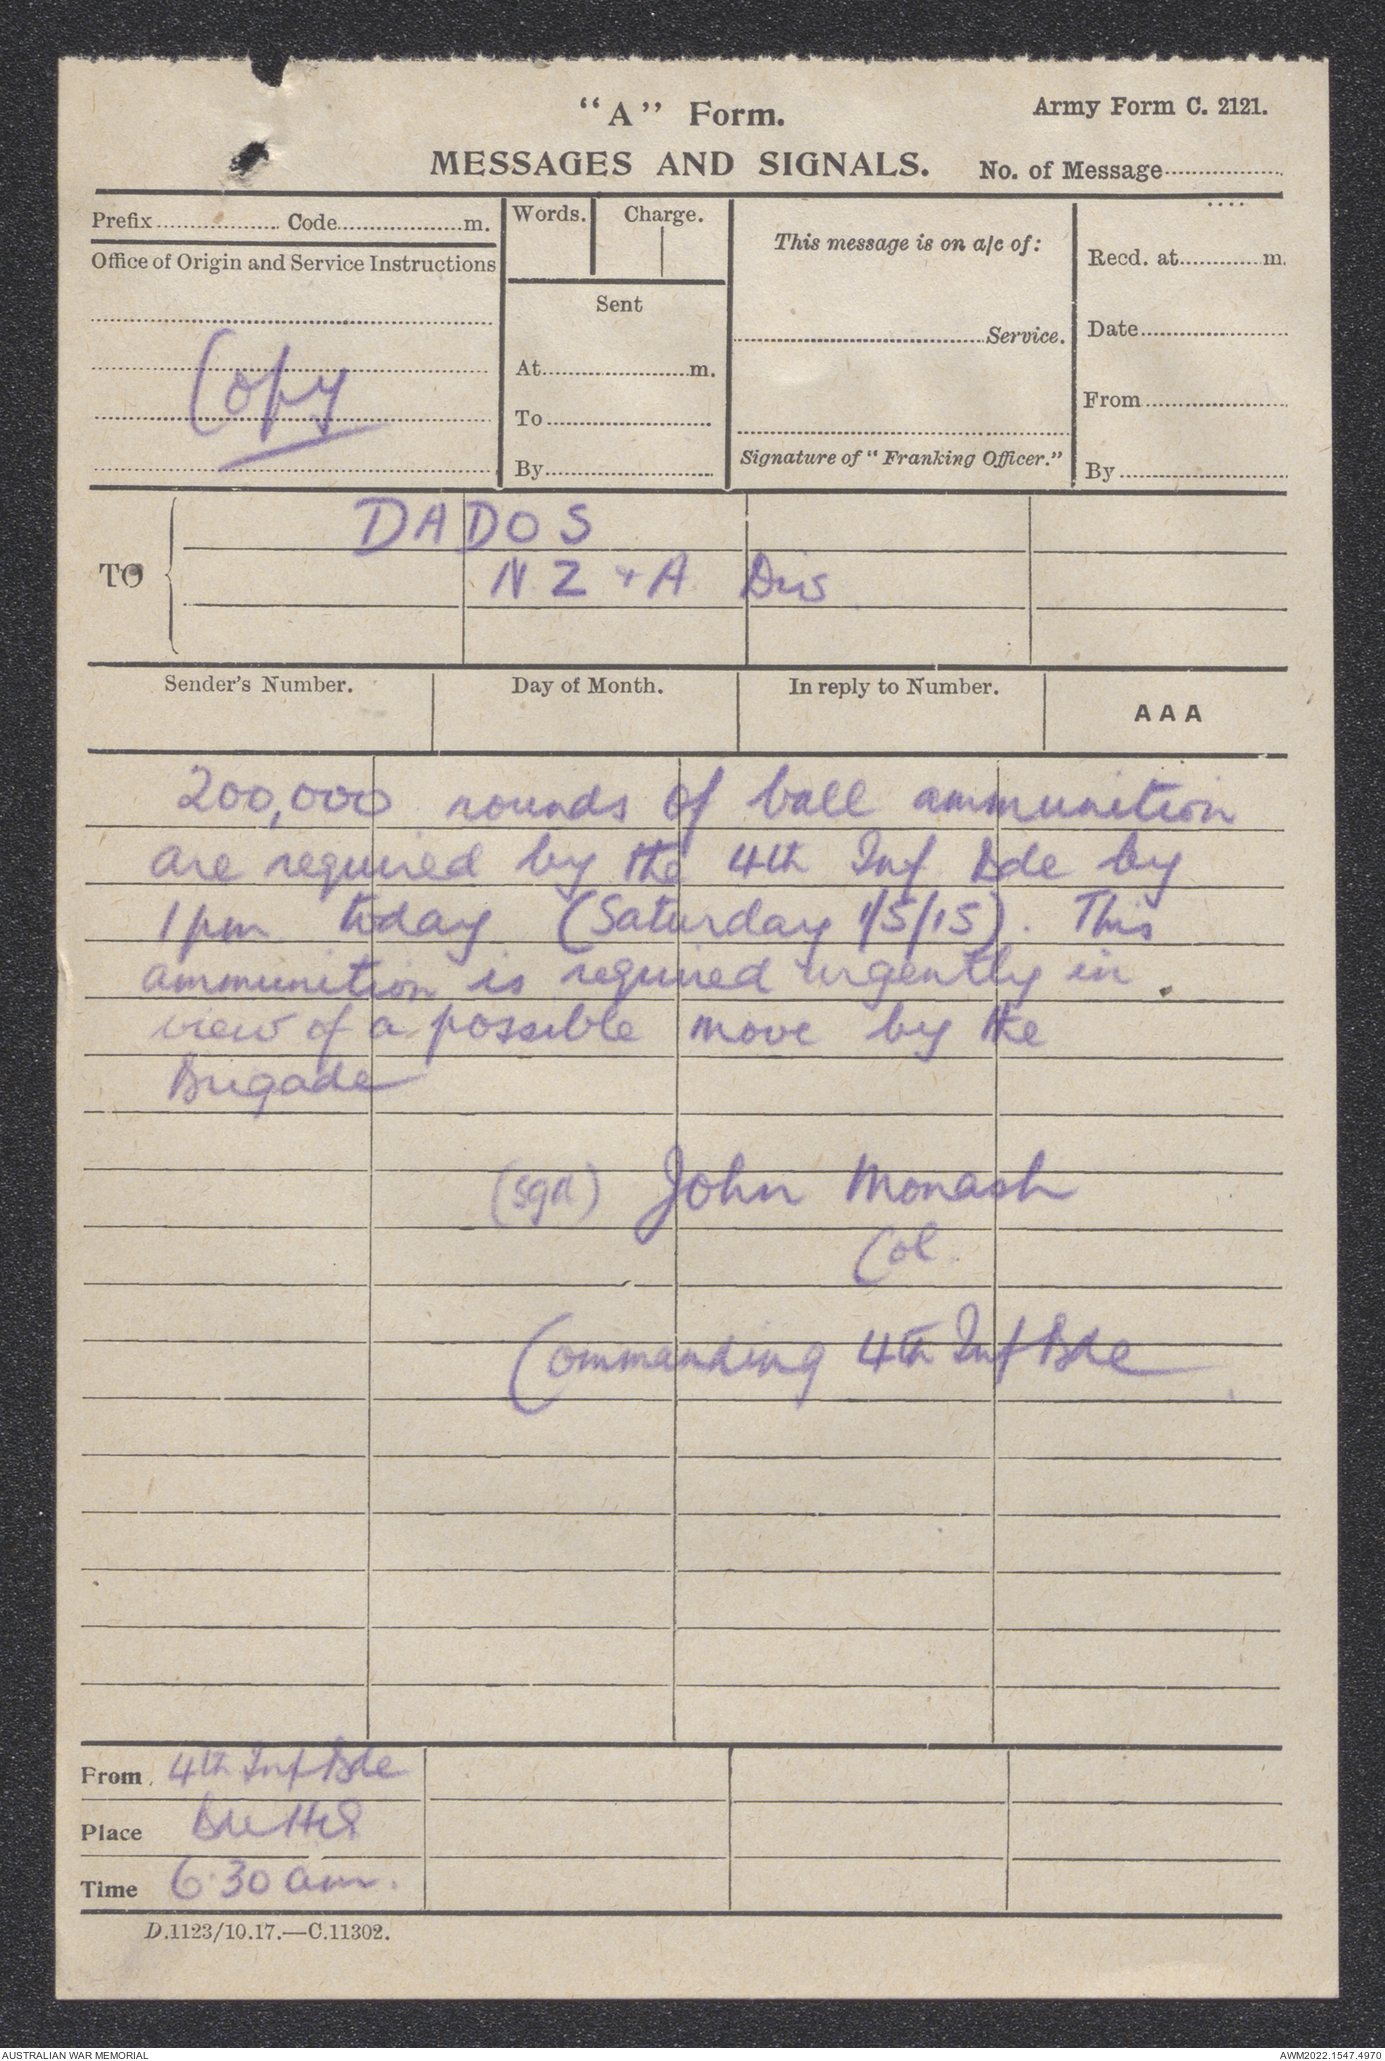 "A" Form.
Army Form C. 2121.
MESSAGES AND SIGNALS.
No. of Message
Prefix Code m.
Words. Charge.
This message is on a/c of:
Recd. at m.
Office of Origin and Service Instructions
Sent
Service.
Date
Copy
At m.
From
To
Signature of "Franking Officer."
By
By
TO
DADOS
N Z + A Div
Sender's Number.
Day of Month.
In reply to Number.
AAA
200,000 rounds of ball ammunition
are required by the 4th Inf Bde by
1pm today (Saturday 1/5/15). This
ammunition is required urgently in
view of a possible move by the
Brigade
(sgd) John Monash
Col.
Commanding 4th Inf Bde
From 4th Inf Bde
Place
Time 6.30 am.
D.1123/10.17.—C.11302.
AUSTRALIAN WAR MEMORIAL
AWM2022.1547.4970